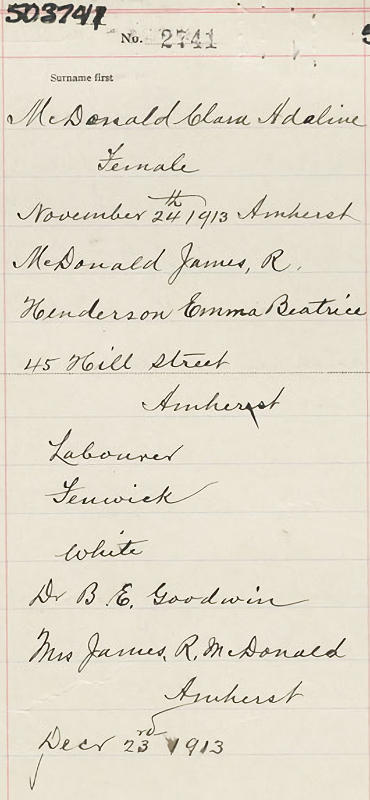 503747
No. 2741
Surname first
McDonald Clara Adaline
Female
November 24th 1913 Amherst
McDonald James, R.
Henderson Emma Beatrice
45 Hill Street
Amherst
Labourer
Fenwick
White
Dr B. E. Goodwin
Mrs James, R. McDonald
Amherst
Decr 23rd 1913